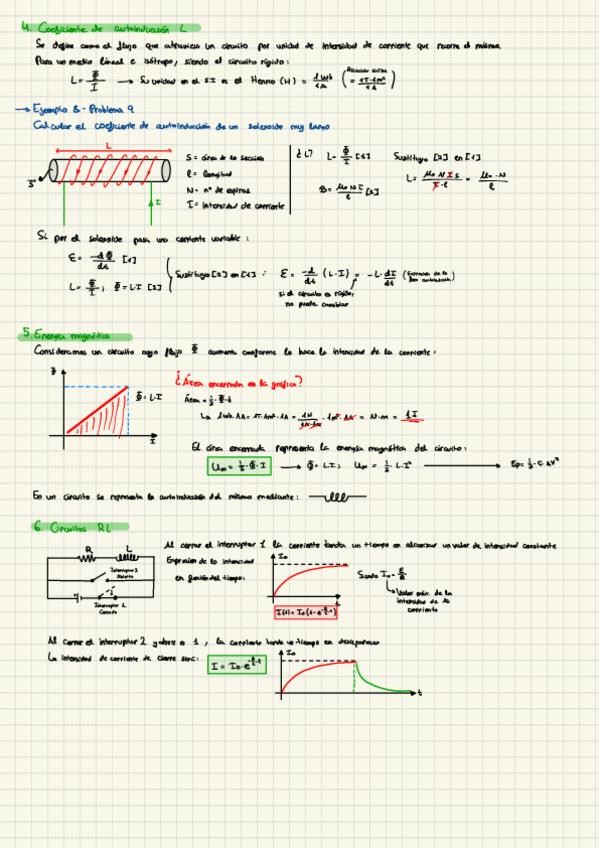 4. Coeficiente de autoinducción L
Se define como el flujo que atraviesa un circuito por unidad de intensidad de corriente que recorre el mismo.
Para un medio lineal e isótropo, siendo el circuito rígido:
L = Φ/I → Su unidad en el S.I es el Henrio (H) = 1Wb/1A (= 1T·1m²/1A)
→ Ejemplo 8 - Problema 9
Calcular el coeficiente de autoinducción de un solenoide muy largo
L
S
I
S = área de la sección
l = longitud
N = nº de espiras
I = intensidad de corriente
¿L? L = Φ/I [1]
B = μ₀ N I/l [2]
Sustituyo [2] en [1]
L = μ₀ N I S/I·l = μ₀·N/l
Si por el solenoide pasa una corriente variable:
ε = -dΦ/dt [1]
L = Φ/I ; Φ = L·I [2]
Sustituyo [2] en [1] : ε = -d/dt (L·I) = -L·dI/dt
si el circuito es rígido, no puede cambiar
5. Energía magnética
Consideramos un circuito cuyo flujo Φ aumenta conforme lo hace la intensidad de la corriente:
Φ
Φ = L·I
I
¿Área encerrada en la gráfica?
Área = ½·Φ·I
↳ 1Wb·1A = 1T·1m²·1A = 1N/1A·1m · 1m²·1A = N·m = 1J
El área encerrada representa la energía magnética del circuito:
Um = ½·Φ·I → Φ = L·I ; Um = ½·L·I² → Ep = ½·C·ΔV²
En un circuito se representa la autoinducción del mismo mediante:
6. Circuitos RL
R L
Interruptor 2
Abierto
Interruptor 1
Cerrado
Al cerrar el interruptor 1 la corriente tarda un tiempo en alcanzar un valor de intensidad constante
Expresión de la intensidad
en función del tiempo:
I₀
t
I(t) = I₀(1 - e^(-R/L·t))
Siendo I₀ = ε/R
↳ Valor máx. de la
intensidad de la
corriente
Al cerrar el interruptor 2 y abrir el 1, la corriente tarda un tiempo en desaparecer
La intensidad de corriente de cierre será: I = I₀·e^(-R/L·t)
I₀
t